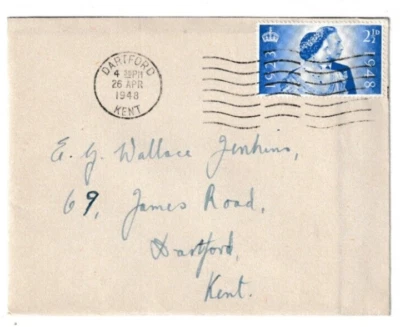 DARTFORD
4 15PM
26 APR
1948
KENT
1923
1948
2½D
E. G. Wallace Jenkins,
69, James Road,
Dartford,
Kent.